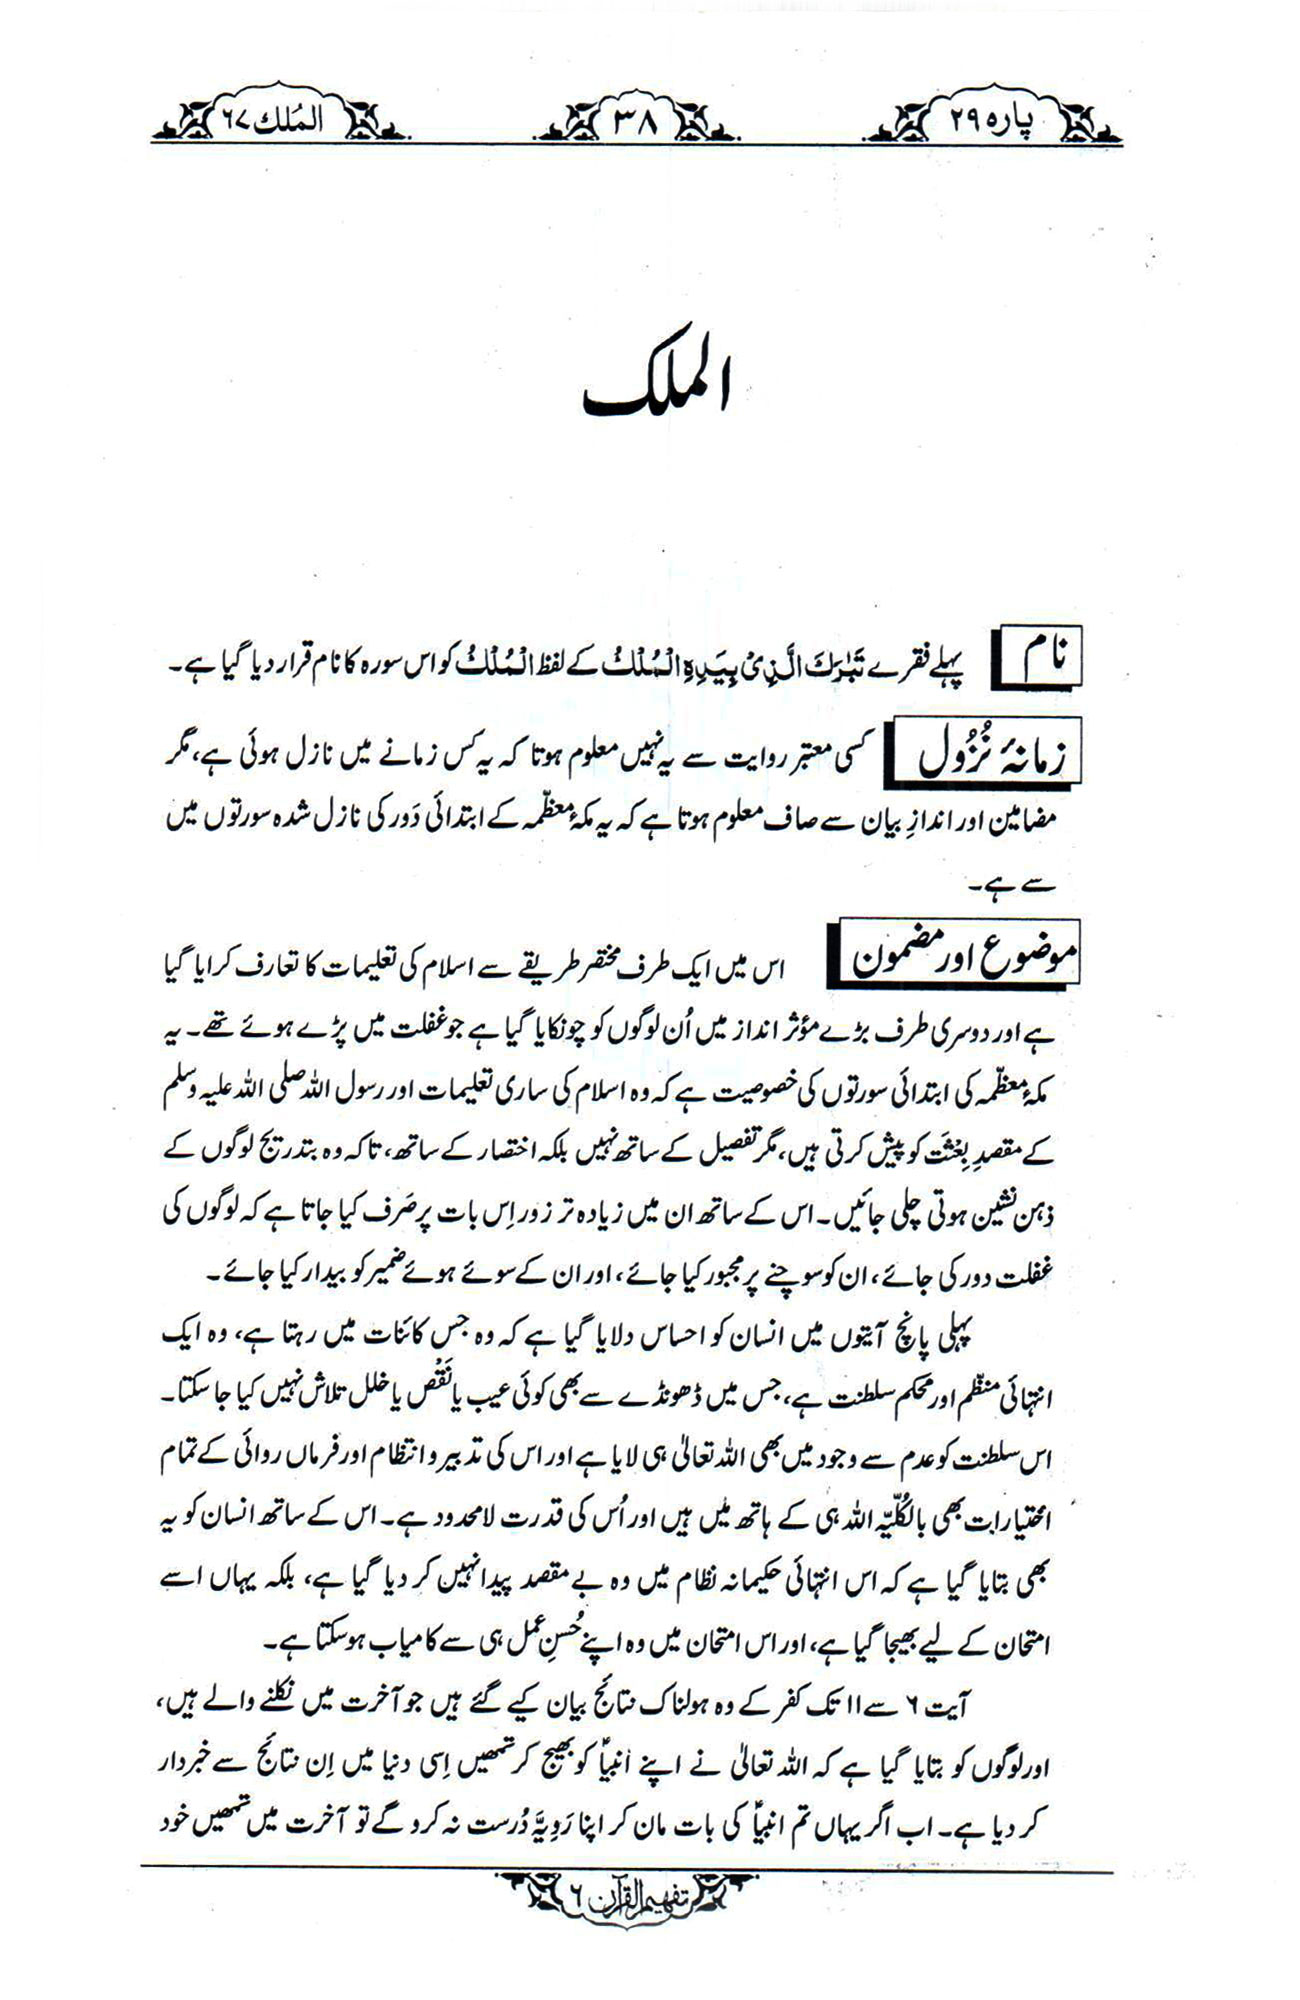 پارہ ۲۹
۳۸
المُلك ۶۷
الملک
نام
پہلے فقرے تَبٰرَكَ الَّذِىْ بِيَدِهِ الْمُلْكُ کے لفظ الْمُلْكُ کو اس سورہ کا نام قرار دیا گیا ہے۔
زمانۂ نُزُول
کسی معتبر روایت سے یہ نہیں معلوم ہوتا کہ یہ کس زمانے میں نازل ہوئی ہے، مگر
مضامین اور اندازِ بیان سے صاف معلوم ہوتا ہے کہ یہ مکۂ معظّمہ کے ابتدائی دَور کی نازل شدہ سورتوں میں
سے ہے۔
موضوع اور مضمون
اس میں ایک طرف مختصر طریقے سے اسلام کی تعلیمات کا تعارف کرایا گیا
ہے اور دوسری طرف بڑے مؤثر انداز میں اُن لوگوں کو چونکایا گیا ہے جو غفلت میں پڑے ہوئے تھے۔ یہ
مکۂ معظّمہ کی ابتدائی سورتوں کی خصوصیت ہے کہ وہ اسلام کی ساری تعلیمات اور رسول اللہ صلی اللہ علیہ وسلم
کے مقصدِ بِعْثَت کو پیش کرتی ہیں، مگر تفصیل کے ساتھ نہیں بلکہ اختصار کے ساتھ، تاکہ وہ بتدریج لوگوں کے
ذہن نشین ہوتی چلی جائیں۔ اس کے ساتھ ان میں زیادہ تر زور اِس بات پر صَرف کیا جاتا ہے کہ لوگوں کی
غفلت دور کی جائے، ان کو سوچنے پر مجبور کیا جائے، اور ان کے سوئے ہوئے ضمیر کو بیدار کیا جائے۔
پہلی پانچ آیتوں میں انسان کو احساس دلایا گیا ہے کہ وہ جس کائنات میں رہتا ہے، وہ ایک
انتہائی منظّم اور محکم سلطنت ہے، جس میں ڈھونڈے سے بھی کوئی عیب یا نَقْص یا خلل تلاش نہیں کیا جا سکتا۔
اس سلطنت کو عدم سے وجود میں بھی اللہ تعالیٰ ہی لایا ہے اور اس کی تدبیر و انتظام اور فرماں روائی کے تمام
اختیارات بھی بالکُلّیہ اللہ ہی کے ہاتھ میں ہیں اور اُس کی قدرت لامحدود ہے۔ اس کے ساتھ انسان کو یہ
بھی بتایا گیا ہے کہ اس انتہائی حکیمانہ نظام میں وہ بے مقصد پیدا نہیں کر دیا گیا ہے، بلکہ یہاں اسے
امتحان کے لیے بھیجا گیا ہے، اور اس امتحان میں وہ اپنے حُسنِ عمل ہی سے کامیاب ہو سکتا ہے۔
آیت ۶ سے ۱۱ تک کفر کے وہ ہولناک نتائج بیان کیے گئے ہیں جو آخرت میں نکلنے والے ہیں،
اور لوگوں کو بتایا گیا ہے کہ اللہ تعالیٰ نے اپنے انبیاؑ کو بھیج کر تمھیں اِسی دنیا میں اِن نتائج سے خبردار
کر دیا ہے۔ اب اگر یہاں تم انبیاؑ کی بات مان کر اپنا رَوِیَّہ دُرست نہ کرو گے تو آخرت میں تمھیں خود
تفہیم القرآن ۶